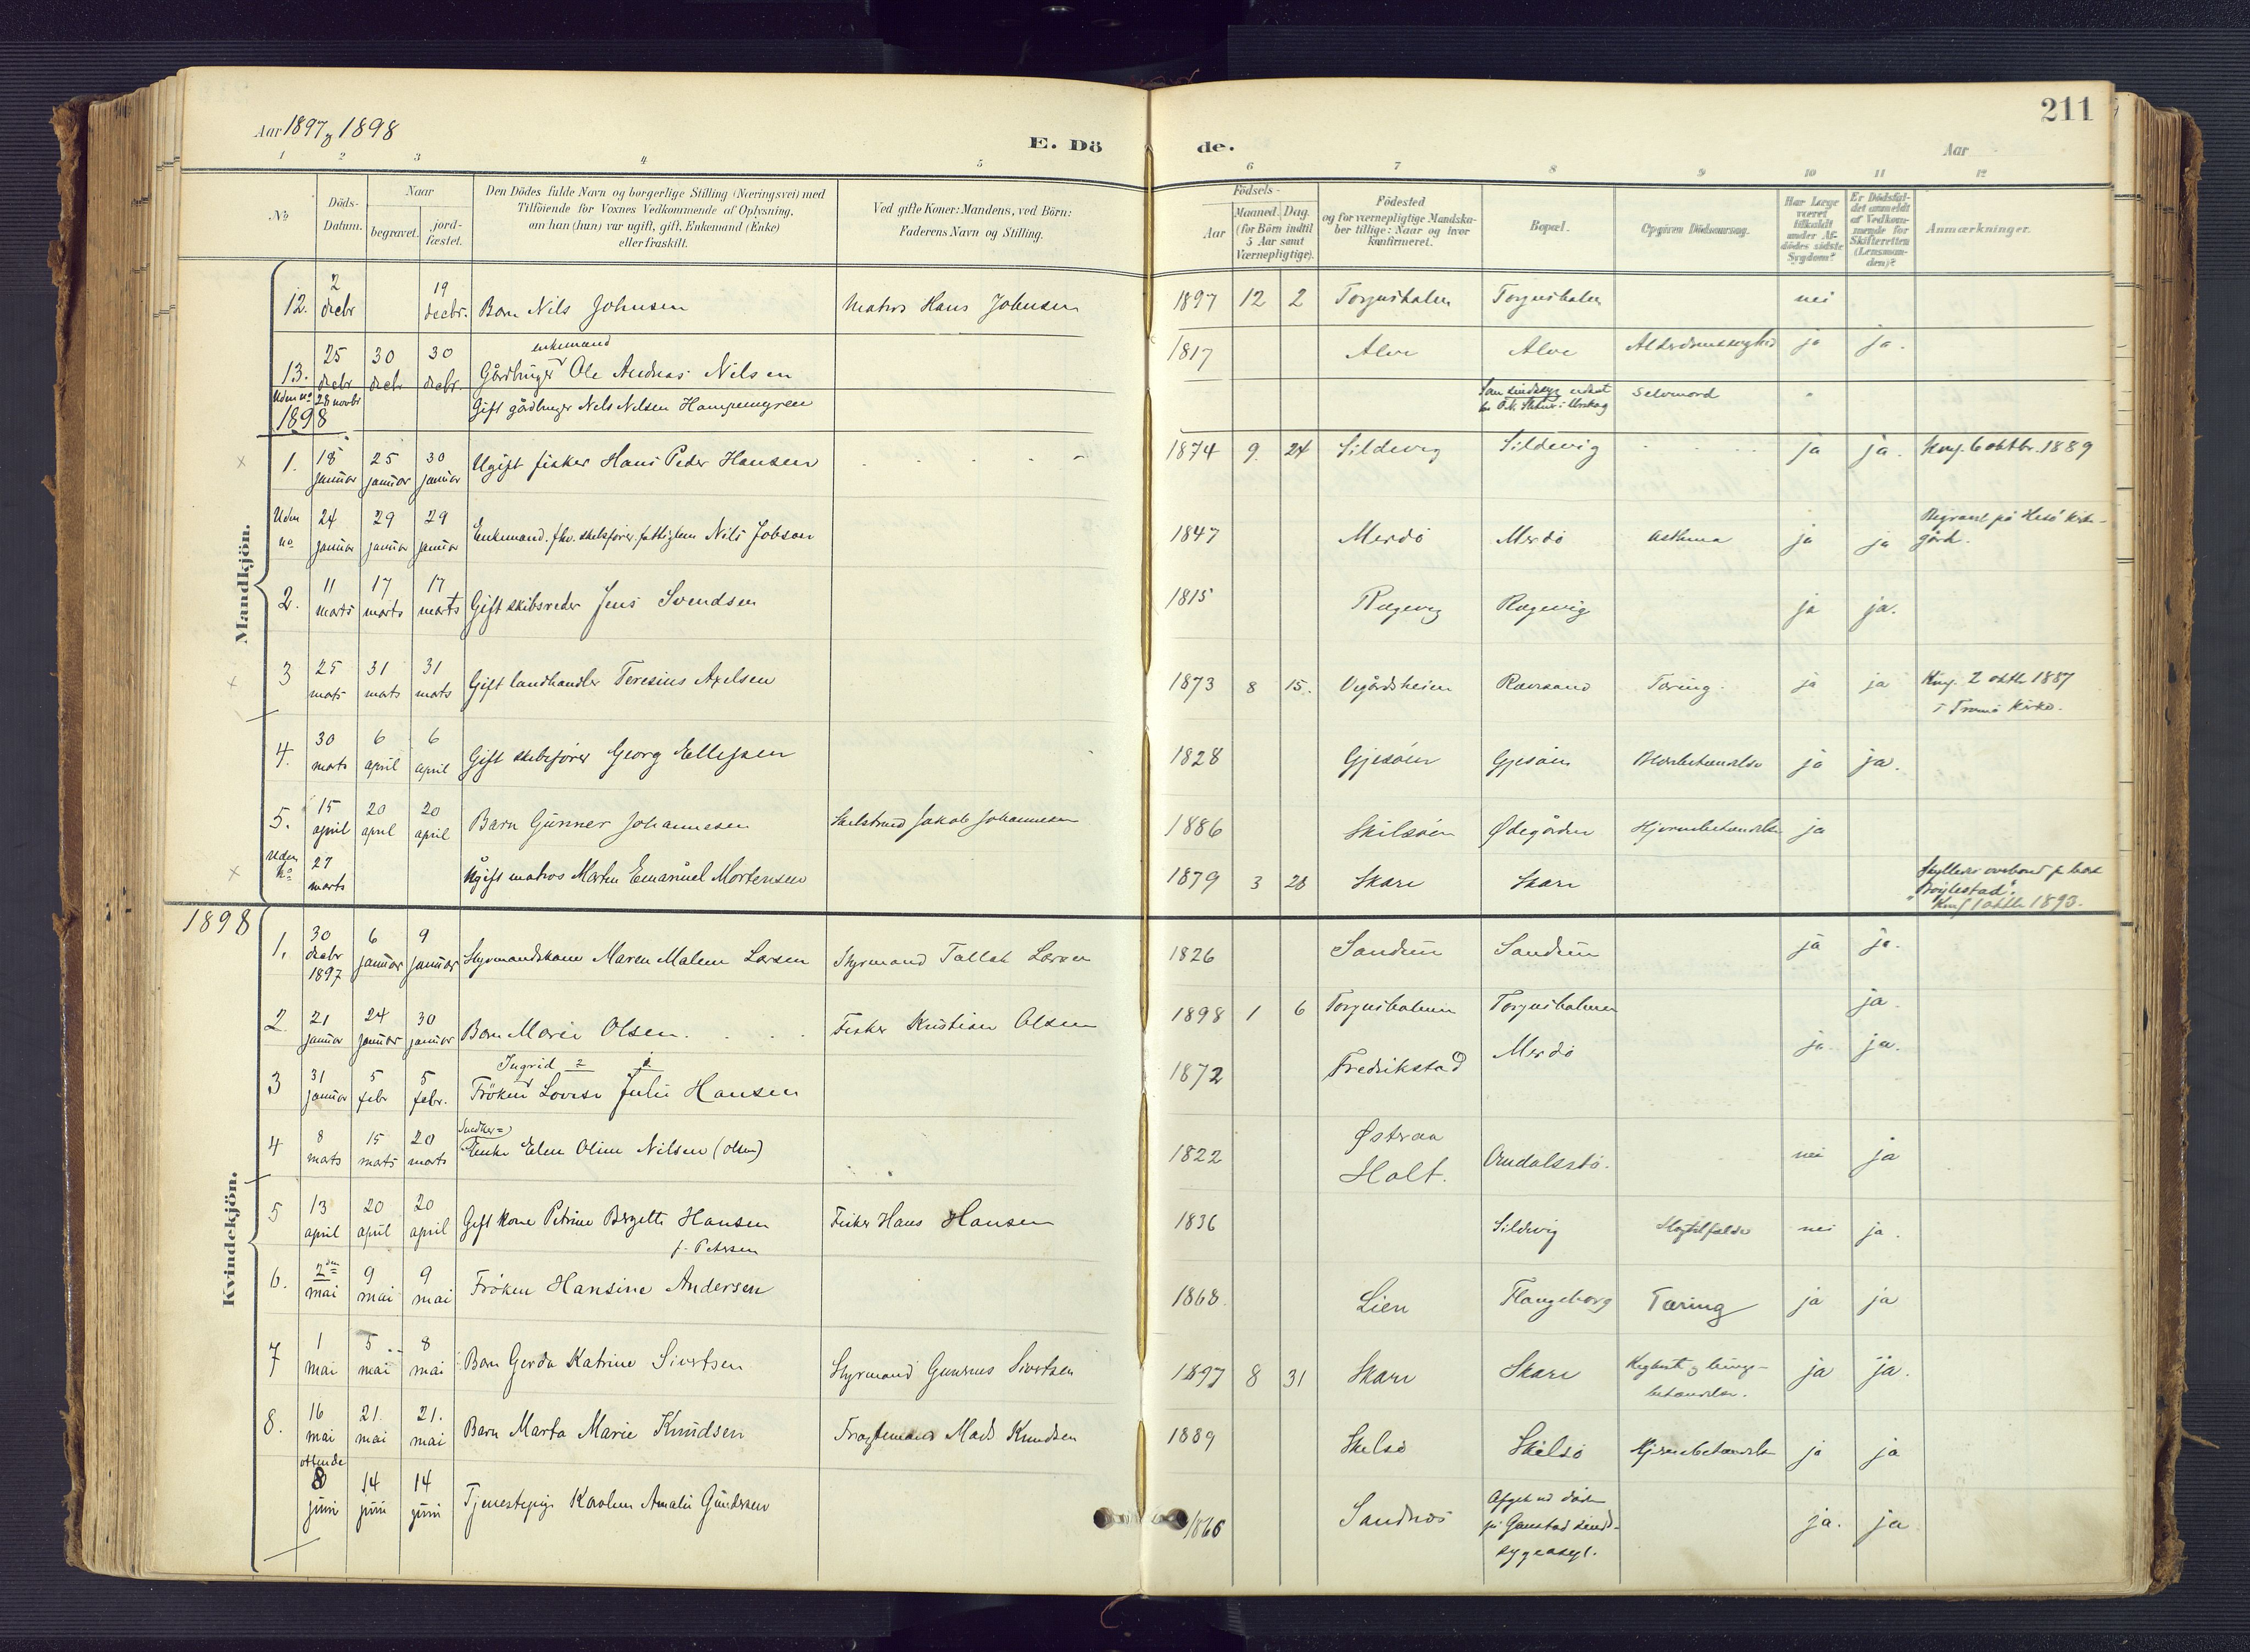 Aar 1897 og 1898
E. Dö de.
211
Aar
1 2 3 4 5 6 7 8 9 10 11 12
No
Döds-Datum.
Naar
begravet.
jord-fæstet.
Den Dödes fulde Navn og borgerlige Stilling (Næringsvei) med
Tilföiende for Voxnes Vedkommende af Oplysning,
om han (hun) var ugift, gift, Enkemand (Enke)
eller fraskilt.
Ved gifte Koner: Mandens, ved Börn:
Faderens Navn og Stilling.
Födsels-
Aar
Maaned. Dag.
(for Börn indtil
5 Aar samt
Værnepligtige).
Födested
og for værnepligtige Mandska-
ber tillige: Naar og hvor
konfirmeret.
Bopæl.
Opgiven Dödsaarsag.
Har Læge
været
tilkaldt
under Af-
dödes sidste
Sygdom?
Er Dödsfal-
det anmeldt
af Vedkom-
mende for
Skifteretten
(Lensman-
den)?
Anmærkninger.
Mandkjön.
12. 2 decbr 19 decbr. Barn Nils Johnsen Matros Hans Johnsen 1897 12 2 Torjusholm Torjusholm nei
enkemand
13. 25 decbr 30 decbr 30 decbr. Gårdbruger Ole Andreas Nilsen 1817 Alve Alve ja ja.
Uden no 28 novbr Gift gårdbruger Nels Nelsen Hampemyren Selvmord
1898
1. 18 januar 25 januar 30 januar Ugift fisker Hans Peder Hansen 1874 9 24 Sildevig Sildevig ja ja. Konf. 6 oktbr. 1889
Uden no 24 januar 29 januar 29 januar Enkemand. fhv. skibsfører, fattiglem Nils Jobson 1847 Merdö Merdö Asthma ja ja Begravet på Hisö kirke-
gård.
2. 11 marts 17 marts 17 marts Gift skibsreder Jens Svendsen 1815 Rægevig Rægevig ja ja.
3 25 marts 31 marts 31 marts Gift landhandler Teresius Axelsen 1873 8 15. Vegårdsheien Revesand Tæring. ja ja Konf. 2 oktbr 1887
i Tromö kirke.
4. 30 marts 6 april 6 april Gift skibsfører Georg Ellefsen 1828 Gjesöen Gjesöen ja ja.
5. 15 april 20 april 20 april Barn Gunner Johannesen Jakob Johannesen 1886 Skilsöen Ødegården Hjernebetændelse ja
Uden No 27 marts Ugift matros Marten Emanuel Mortensen 1879 3 28 Skare Skare Skylledes overbord fra bark
"Bøylestad".
Konf 1 oktbr 1893.
Kvindekjön.
1898
1. 30 decbr 1897 6 januar 9 januar Styrmandskone Maren Malene Larsen Styrmand Tallak Larsen 1826 Sandum Sandum ja ja.
2. 21 januar 24 januar 30 januar Barn Marie Olsen. Fisker Kristian Olsen 1898 1 6 Torjusholmen Torjusholmen ja
Ingrid
3 31 januar 5 febr 5 febr. Fröken Lovise Julie Hansen 1872 Fredrikstad Merdö ja ja.
Snedker=
4 8 marts 15 marts 20 marts Enke Elen Oline Nilsen (Olsen) 1822 Østeraa
Holt. Arndalsstö. nei ja
5 13 april 20 april 20 april Gift kone Petrine Bergette Hansen Fisker Hans Hansen 1836 Sildevig Slagtilfælde nei ja.
f. Petersen
6. 2den mai 9 mai 9 mai Fröken Hansine Andersen 1868. Lien Flangeborg Tæring ja ja
7 1 mai 5 mai 8 mai Barn Gerda Katrine Sivertsen Styrmand Gunerus Sivertsen 1897 8 31 Skare Skare Kighoste og lunge-
betændelse. ja ja.
8. 16 mai 21. mai 21. mai Barn Marta Marie Knudsen Fragtemand Mads Knudsen 1889 Skilsö Skilsö Hjernebetændelse ja ja
ottende
8 juni 14 juni 14 juni Tjenestepige Karoline Amalie Gundersen 1866 Sandnæs Afgik ved döden
på Gaustad sinds-
sygeasyl. ja. ja